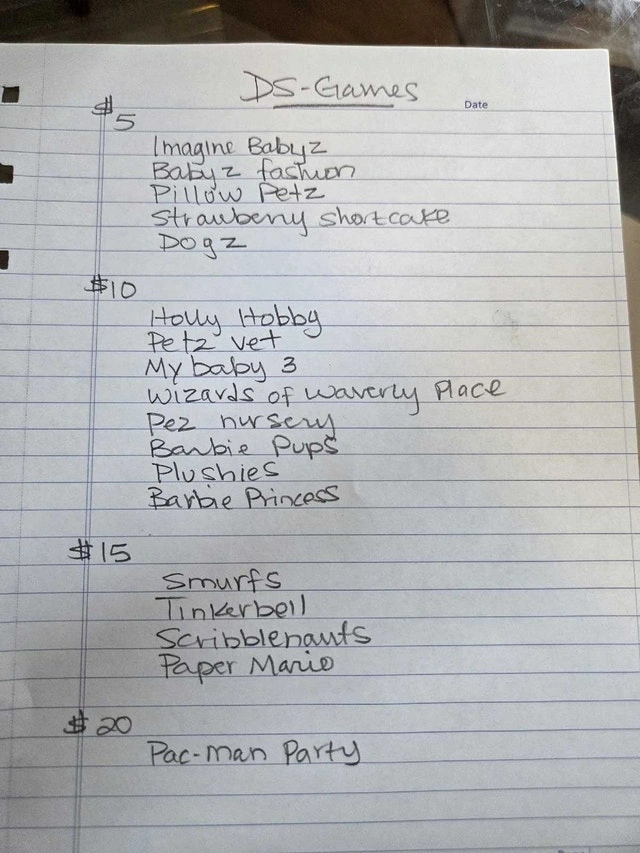 DS-Games
Date
$5
Imagine Babyz
Babyz fashion
Pillow Petz
Strawberry shortcake
Dogz
$10
Holly Hobby
Petz vet
My baby 3
Wizards of waverly Place
Pez nursery
Barbie Pups
Plushies
Barbie Princess
$15
Smurfs
Tinkerbell
Scribblenauts
Paper Mario
$20
Pac-man Party